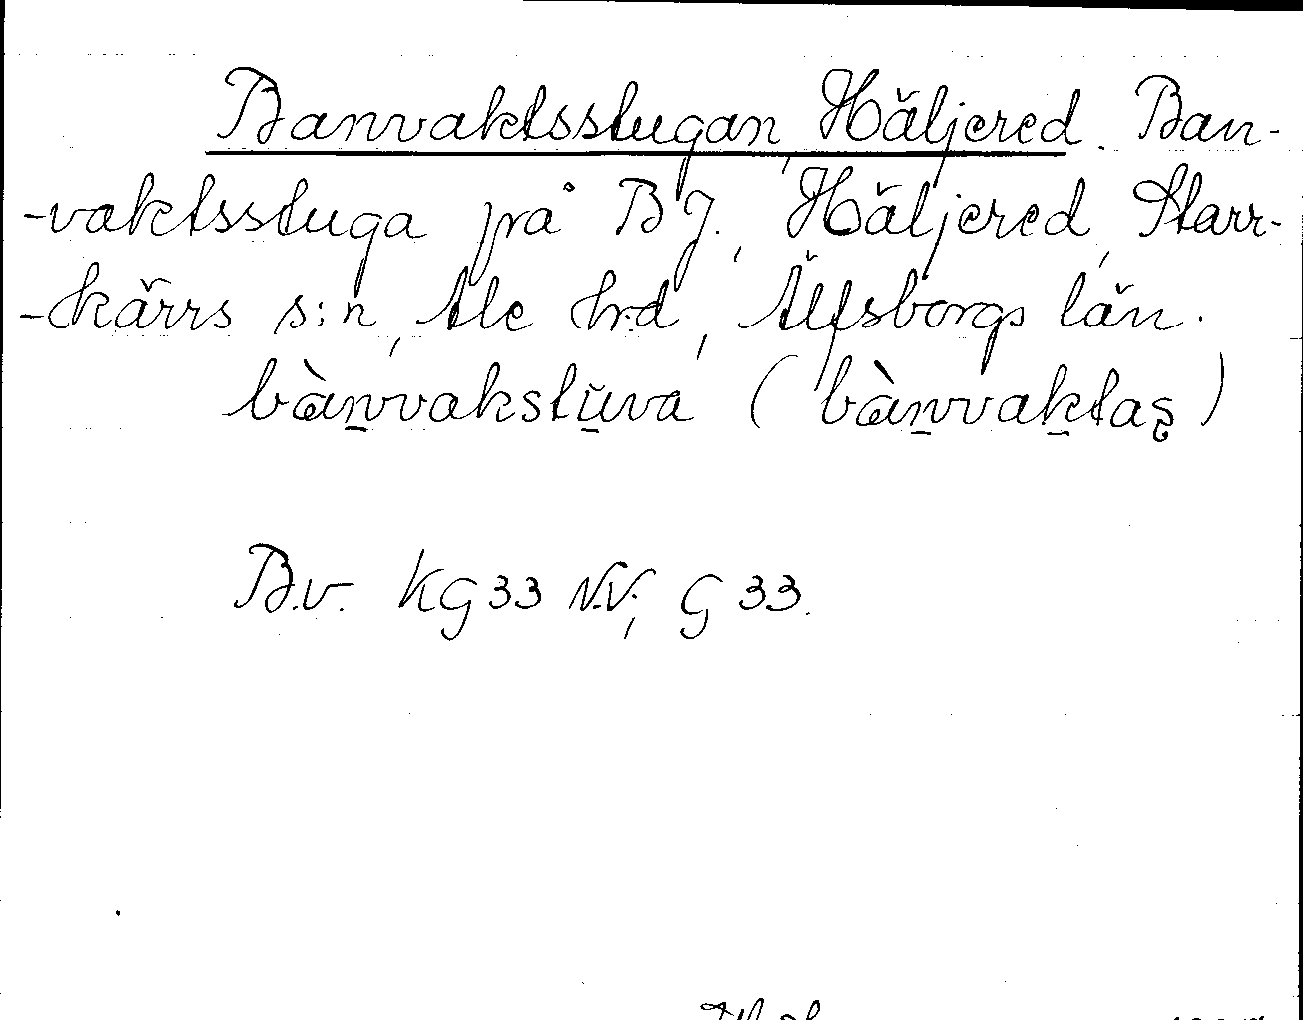 Banvaktsstugan, Häljered. Ban-
-vaktsstuga på B J., Häljered, Starr-
-kärrs s:n, Ale h:d, Älfsborgs län.
bànvakstuva (bànvaktas)
B.v. KG33 N.V; G 33.